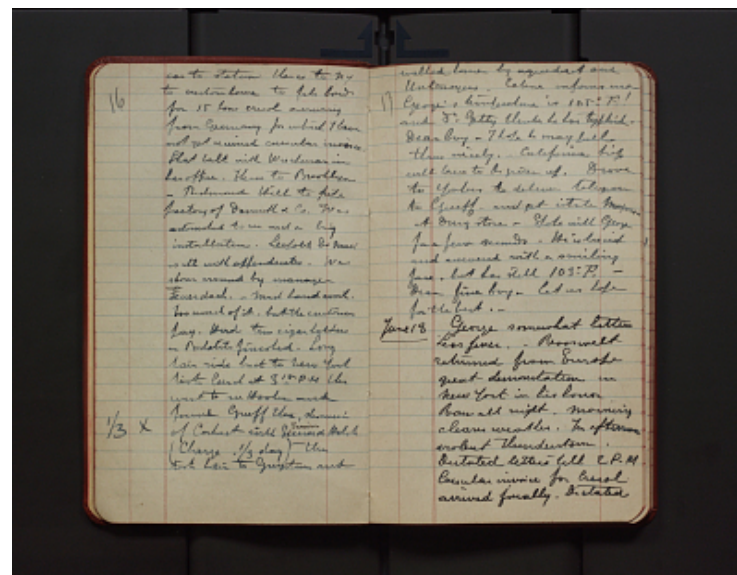 16
car to station thence to NY
to custom house to file bond
for 15 tons cresol arriving
from Germany for which I have
not yet received consular invoice.
Short talk with
his office. Then to Brooklyn
- Richmond Hill to pipe
factory of & Co. Was
astonished to see such a big
installation.
ill with appendicitis. Was
shown around by manager
. - hand work.
Too much of it. but the customers
pay. Had two cigar holders
in Bakelite finished. Long
train ride back to New York
5 P.M. then
went to and
found Grieff there,
of
1/3 X
(Charge 1/3 day) then
took train to Greystone and
17
walked home by aqueduct and
Untermyers. Celine informs me
George's temperature is 105° F!
and Dr. Getty thinks he has typhoid.
Dear boy - I hope he may pull
thru nicely. - California trip
will have to be given up. Drove
to Yonkers to deliver telegram
to Grieff. and get
at Drug store - State with George
for few minutes - He is tired
and answered with a smiling
face, but has still 103° F. -
Dear fine boy. Let us hope
for the best. -
June 18 George somewhat better
Less fever. - Roosevelt
returned from Europe
great demonstration in
New York in his honor
Ran all night. Morning
clear weather. In afternoon
violent thunderstorm.
Dictated letters till 2 P.M.
Consular invoice for Cresol
arrived finally. Dictated